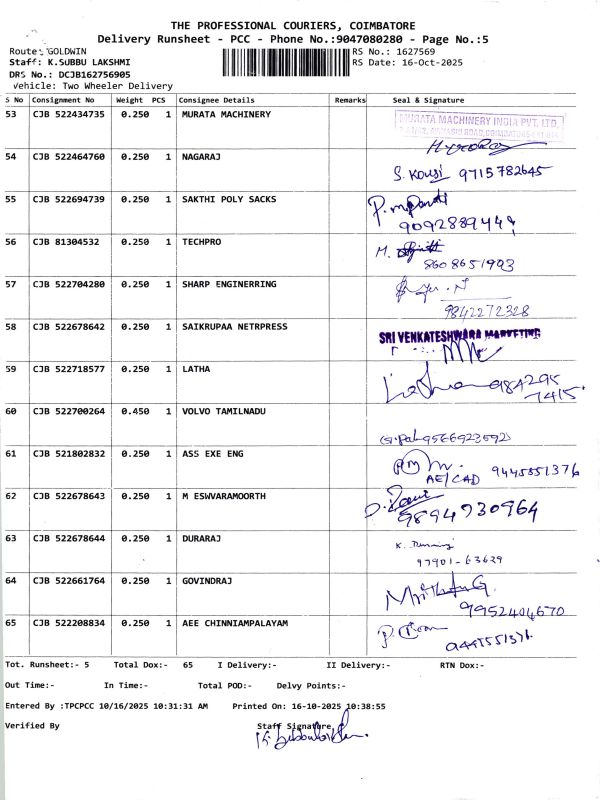 THE PROFESSIONAL COURIERS, COIMBATORE
Delivery Runsheet - PCC - Phone No.:9047080280 - Page No.:5
Route: GOLDWIN
RS No.: 1627569
Staff: K.SUBBU LAKSHMI
RS Date: 16-Oct-2025
DRS No.: DCJB162756905
Vehicle: Two Wheeler Delivery
S No Consignment No Weight PCS Consignee Details Remarks Seal & Signature
53 CJB 522434735 0.250 1 MURATA MACHINERY
MURATA MACHINERY INDIA PVT. LTD.
54 CJB 522464760 0.250 1 NAGARAJ
S. Kousi 9715782645
55 CJB 522694739 0.250 1 SAKTHI POLY SACKS
9092889449
56 CJB 81304532 0.250 1 TECHPRO
M.
8608651993
57 CJB 522704280 0.250 1 SHARP ENGINERRING
9842272328
58 CJB 522678642 0.250 1 SAIKRUPAA NETRPRESS
SRI VENKATESHWARA MARKETING
59 CJB 522718577 0.250 1 LATHA
Latha 984295
7415
60 CJB 522700264 0.450 1 VOLVO TAMILNADU
9566923592
61 CJB 521802832 0.250 1 ASS EXE ENG
AE/CAD 9445851376
62 CJB 522678643 0.250 1 M ESWVARAMOORTH
9894930964
63 CJB 522678644 0.250 1 DURARAJ
97901-63629
64 CJB 522661764 0.250 1 GOVINDRAJ
9952404670
65 CJB 522208834 0.250 1 AEE CHINNIAMPALAYAM
Tot. Runsheet:- 5 Total Dox:- 65 I Delivery:- II Delivery:- RTN Dox:-
Out Time:- In Time:- Total POD:- Delvy Points:-
Entered By :TPCPCC 10/16/2025 10:31:31 AM Printed On: 16-10-2025 10:38:55
Verified By Staff Signature